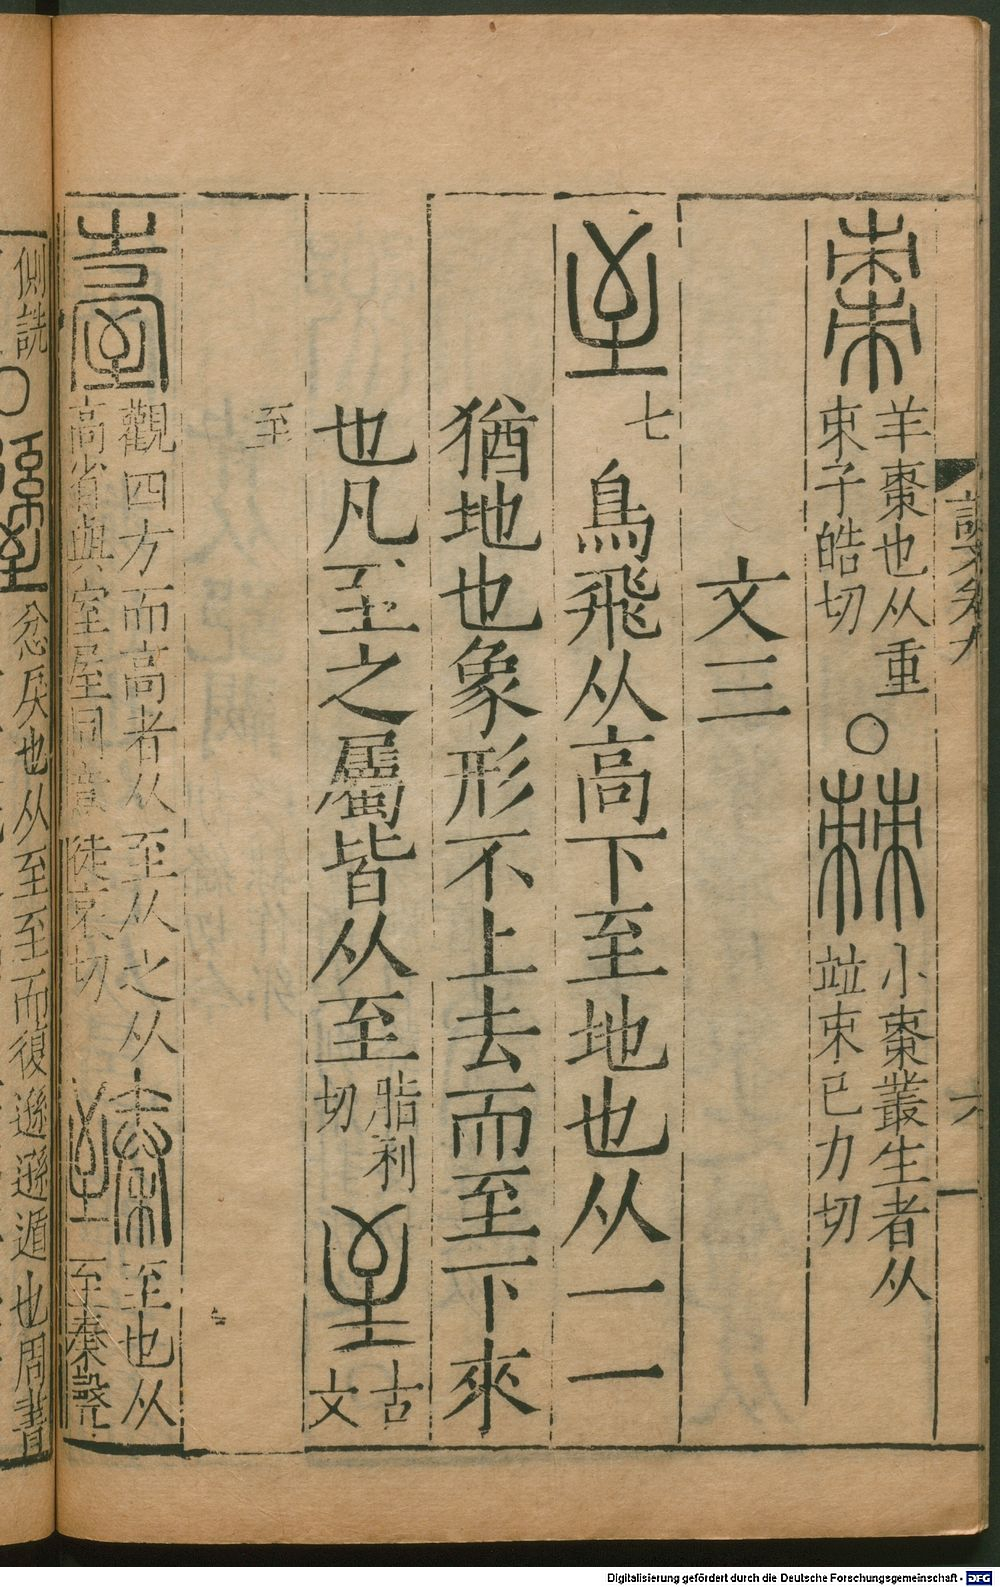 說文卷九
六
棗
羊棗也从重
朿子皓切
○
棘
小棗叢生者从
竝朿已力切
文三
至
七
鳥飛从高下至地也从一一
猶地也象形不上去而至下來
也凡至之屬皆从至
脂利
切
古
文
至
臺
觀四方而高者从至从之从
高省與室屋同意徒哀切
臻
至也从
至秦聲
側詵
○
忿戾也从至至而復遜遜遁也周書
Digitalisierung gefördert durch die Deutsche Forschungsgemeinschaft - DFG